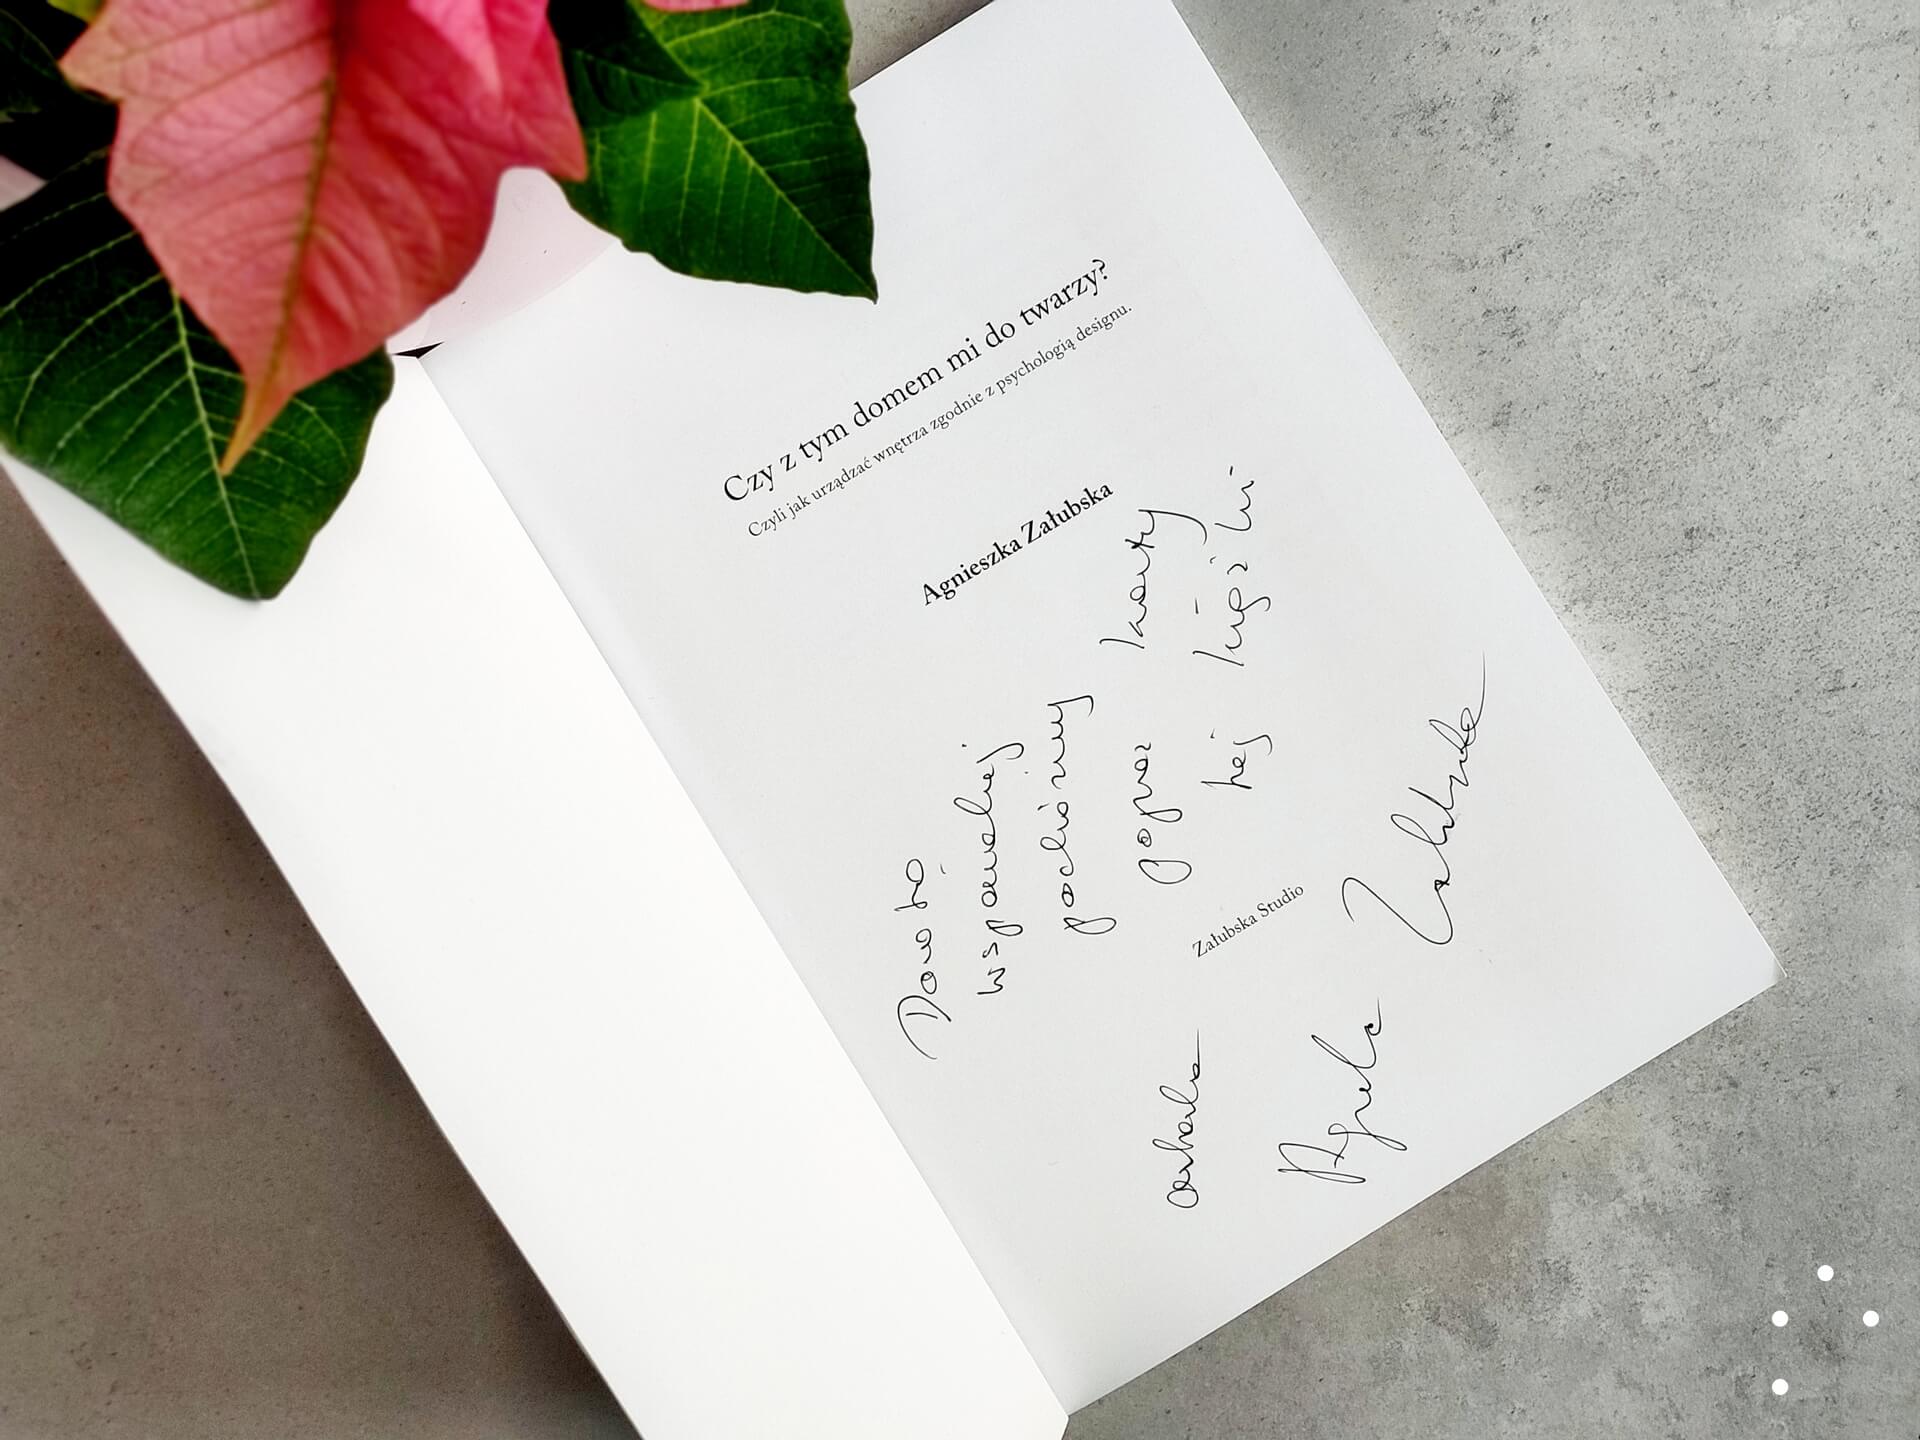 Czy z tym domem mi do twarzy?
Czyli jak urządzać wnętrza zgodnie z psychologią designu.
Agnieszka Załubska
wspaniałej
podróży
poprzez karty
tej książki
Załubska Studio
Załubska